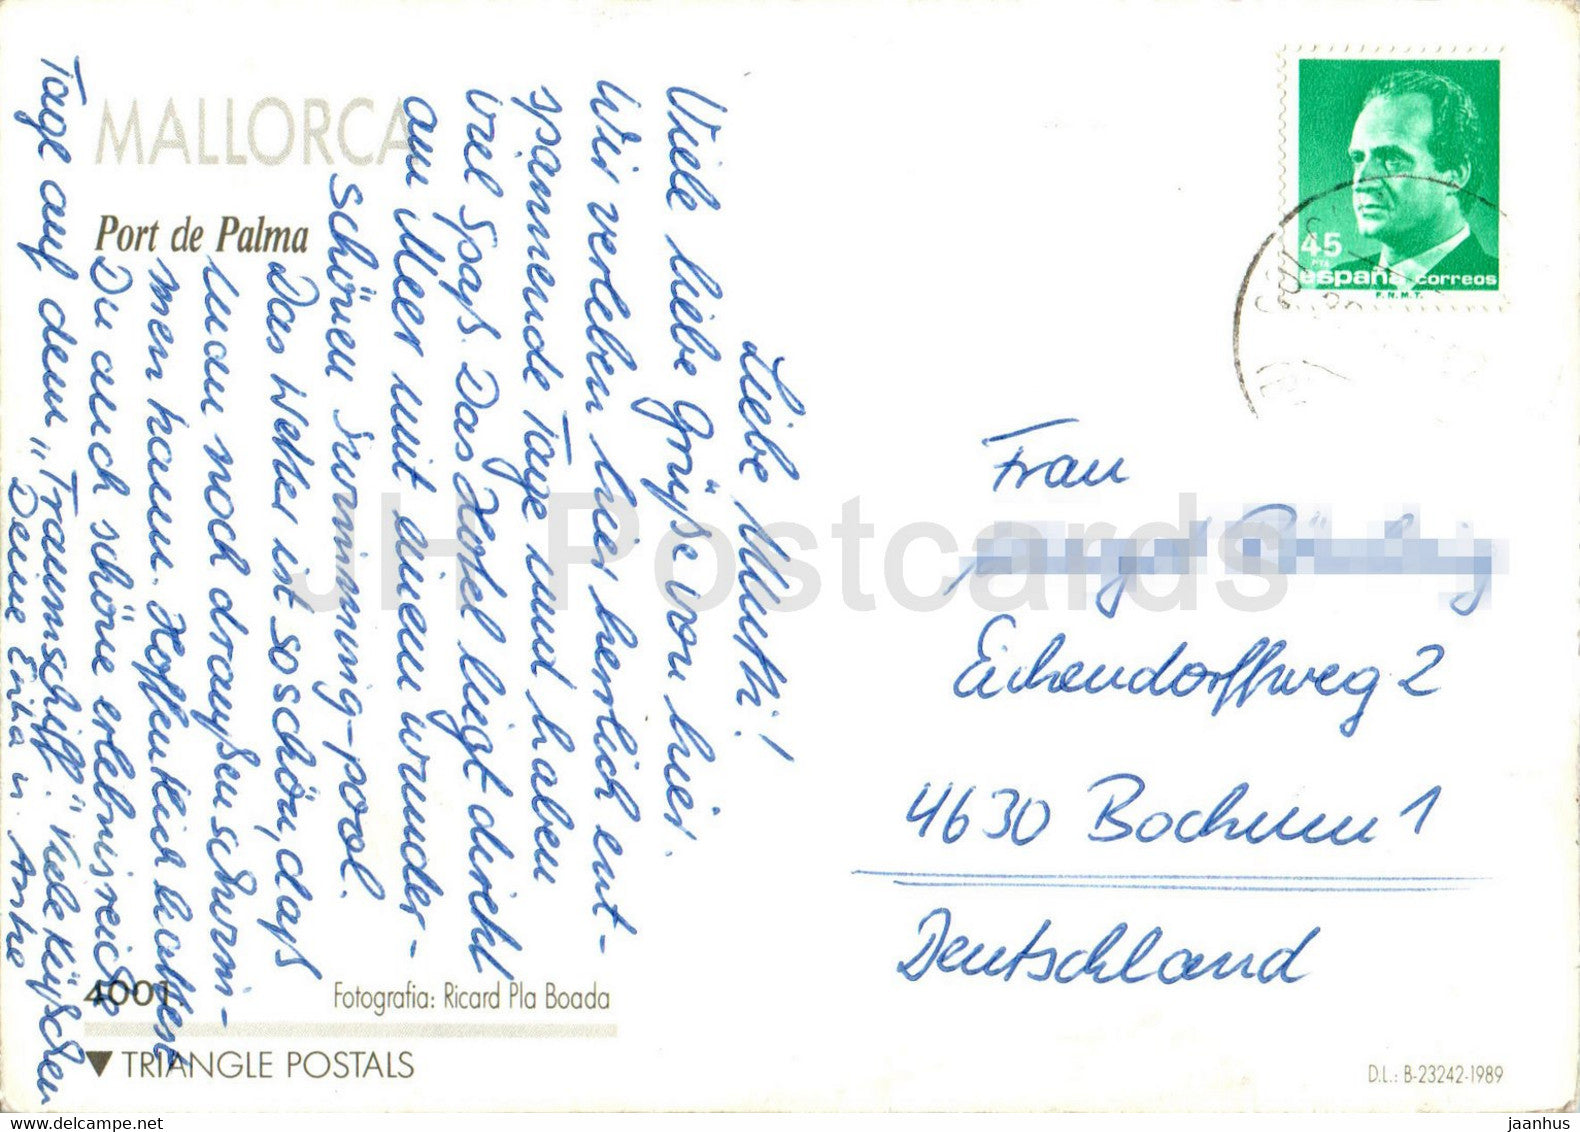 MALLORCA
Port de Palma
Liebe Mutti!
Viele liebe Grüße von hier.
Wir verleben hier herrlich ent-
spannende Tage und haben
viel Spaß. Das Hotel liegt direkt
am Meer mit einem wunder-
schönen Swimming-pool.
Das Wetter ist so schön, daß
man noch draußen schwim-
men kann. Hoffentlich hattest
Du auch schöne erlebnisreiche
Tage auf dem „Traumschiff." Viele Küßchen
Deine Erika u.
45
PTA
españa correos
F.N.M.T.
Frau
Eichendorffweg 2
4630 Bochum 1
Deutschland
4001
Fotografia: Ricard Pla Boada
TRIANGLE POSTALS
D.L.: B-23242-1989
JH Postcards
delcampe.net
jaanhus